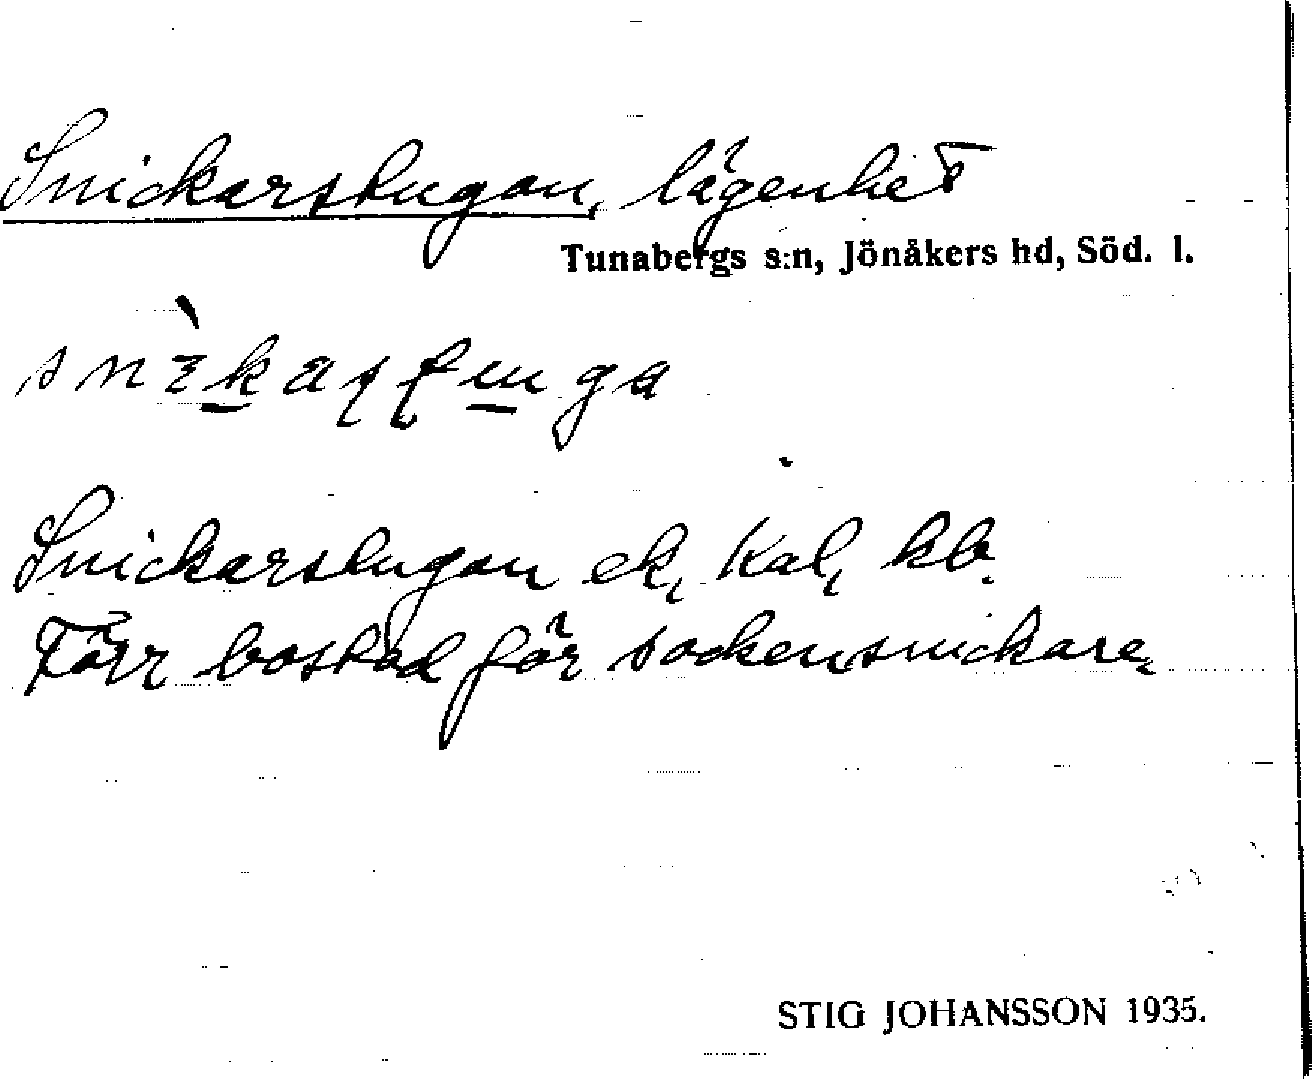 Snickarstugan, lägenhet
Tunabergs s:n, Jönåkers hd, Söd. l.
Snickarstugan ek, kal, kb.
Förr bostad för sockensnickare.
STIG JOHANSSON 1935.